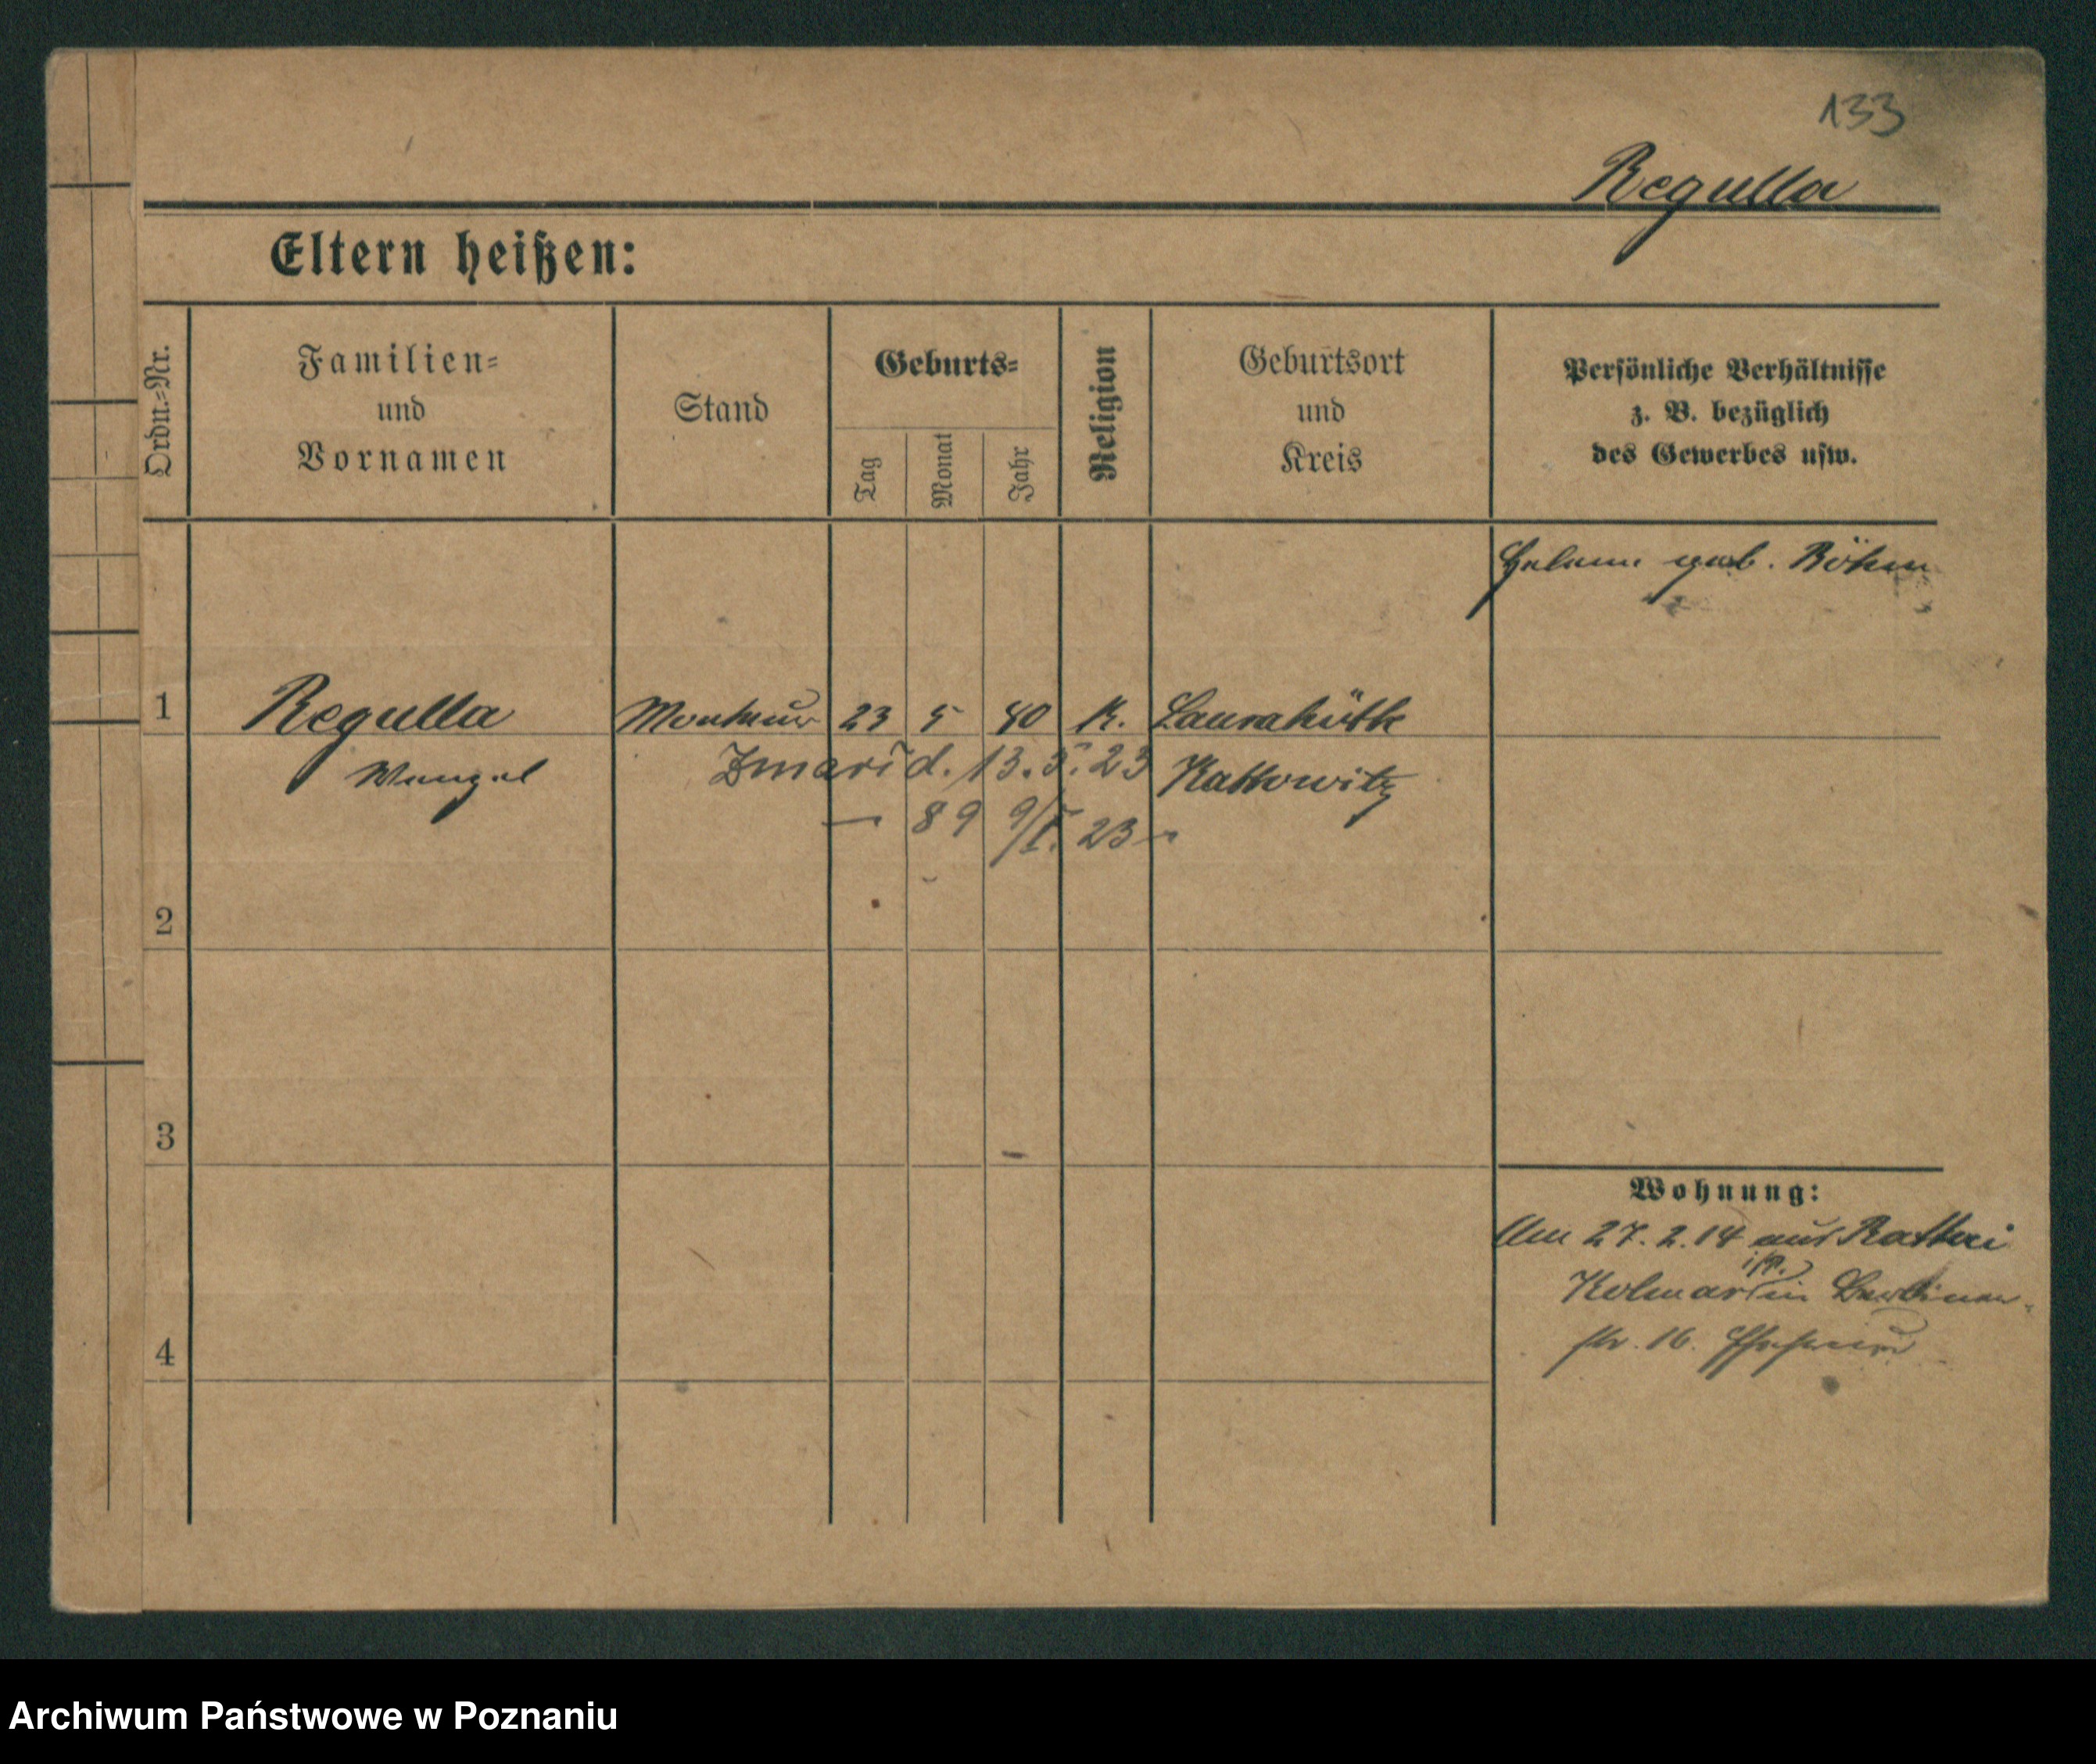 133
Regulla
Eltern heißen:
Ordn.-Nr.
Familien-
und
Vornamen
Stand
Geburts-
Tag
Monat
Jahr
Religion
Geburtsort
und
Kreis
Persönliche Verhältnisse
z. B. bezüglich
des Gewerbes usw.
Helene geb. Böhm
1 Regulla Monteur 23 5 80 K. Laurahütte
Wenzel Zmarł d. 13.5.23 Kattowitz
— 89 9/I. 23 —
2
3
Wohnung:
Am 27.2.14 aus Rattai
Kolmar i/P. in Berliner-
str. 16.
4
Archiwum Państwowe w Poznaniu